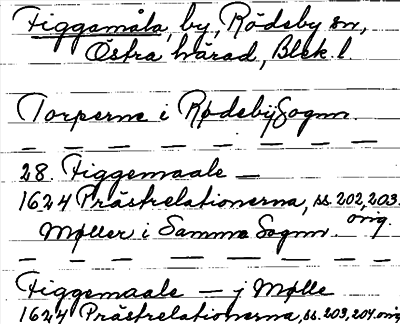 Figgamåla, by, Rödeby sn,
Östra härad, Blek. l.
Torperne i RødebÿSognn.
28. Figgemaale —
1624 Prästrelationerna, ss. 202, 203.
orig.
Møller i Samma Sognn.
Figgemaale — j Mølle
1624 Prästrelationerna, ss. 203, 204. orig